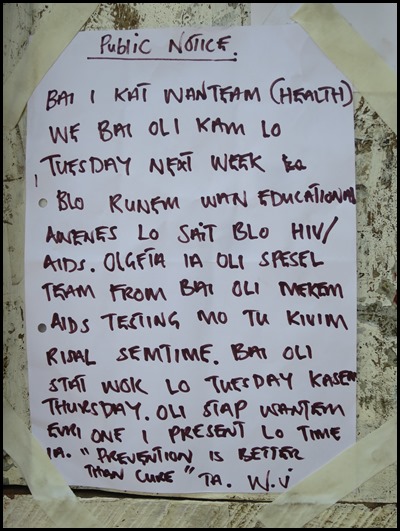 PUBLIC NOTICE.
BAI I KAT WANTEAM (HEALTH)
WE BAI OLI KAM LO
TUESDAY NEXT WEEK
BLO RUNEM WAN EDUCATIONAL
AWENES LO SAIT BLO HIV/
AIDS. OLGETA IA OLI SPESEL
TEAM FROM BAI OLI MEKEM
AIDS TESTING MO TU KIVIM
RISAL SEMTIME. BAI OLI
STAT WOK LO TUESDAY KASEM
THURSDAY. OLI STAP WANTEM
EVRI ONE I PRESENT LO TIME
IA. "PREVENTION IS BETTER
THAN CURE" TA. W.V